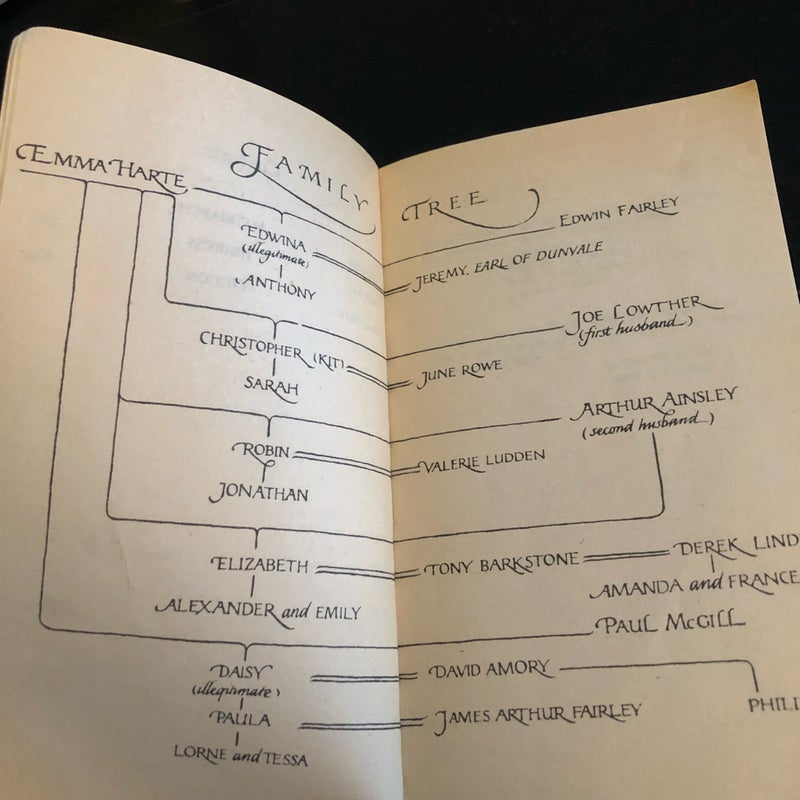 FAMILY TREE
EMMA HARTE
EDWIN FAIRLEY
EDWINA
(illegitimate)
JEREMY, EARL OF DUNVALE
ANTHONY
JOE LOWTHER
(first husband)
CHRISTOPHER (KIT)
JUNE ROWE
SARAH
ARTHUR AINSLEY
(second husband)
ROBIN
VALERIE LUDDEN
JONATHAN
ELIZABETH
TONY BARKSTONE
DEREK LIND
AMANDA and FRANCE
ALEXANDER and EMILY
PAUL McGILL
DAISY
(illegitimate)
DAVID AMORY
PHILI
PAULA
JAMES ARTHUR FAIRLEY
LORNE and TESSA